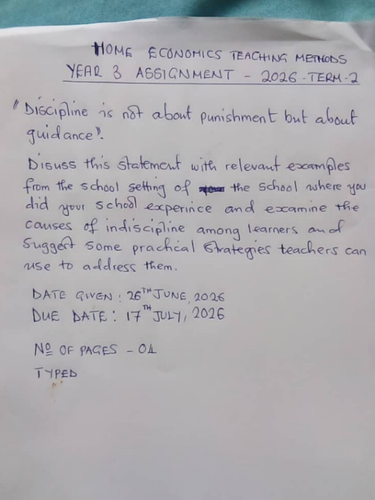 HOME ECONOMICS TEACHING METHODS
YEAR 3 ASSIGNMENT - 2026 - TERM - 2
"Discipline is not about punishment but about
guidance".
Disuss this statement with relevant examples
from the school setting of the school where you
did your school experince and examine the
causes of indiscipline among learners and
suggest some practical strategies teachers can
use to address them.
DATE GIVEN : 26TH JUNE, 2026
DUE DATE : 17TH JULY, 2026
No OF PAGES - 04
TYPED